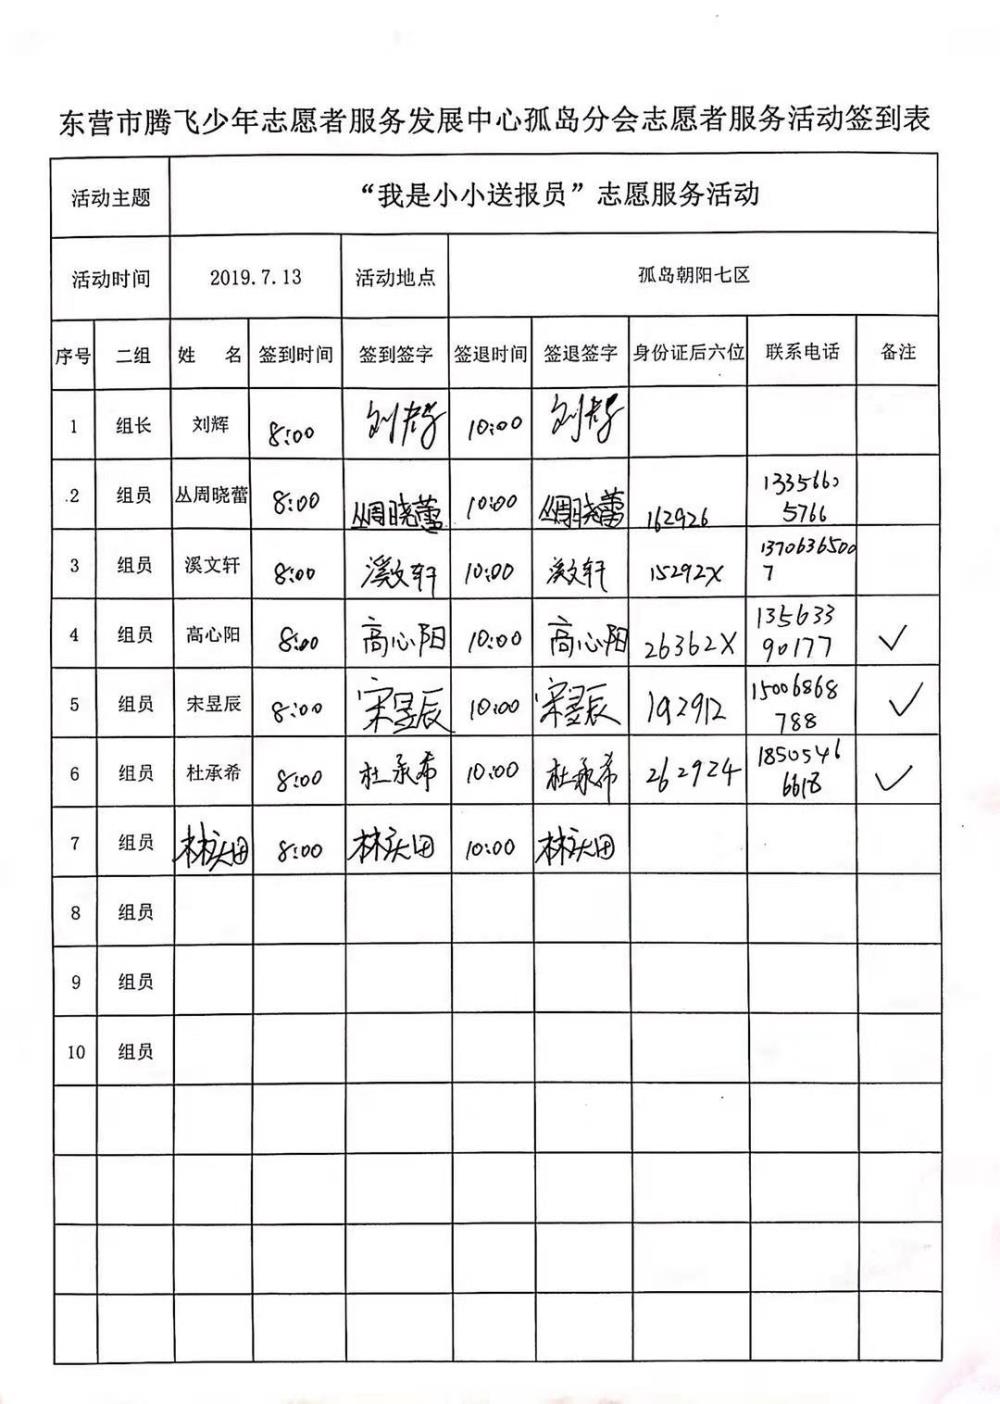 东营市腾飞少年志愿者服务发展中心孤岛分会志愿者服务活动签到表
活动主题 “我是小小送报员”志愿服务活动
活动时间 2019.7.13 活动地点 孤岛朝阳七区
序号 二组 姓 名 签到时间 签到签字 签退时间 签退签字 身份证后六位 联系电话 备注
1 组长 刘辉 8:00 10:00
2 组员 丛周晓蕾 8:00 丛周晓蕾 10:00 丛周晓蕾 162926 1335660
5766
3 组员 溪文轩 8:00 溪文轩 10:00 溪文轩 15292X 1370636500
7
4 组员 高心阳 8:00 高心阳 10:00 高心阳 26362X 135633
90177 ✓
5 组员 宋昱辰 8:00 宋昱辰 10:00 宋昱辰 192912 15006868
788 ✓
6 组员 杜承希 8:00 杜承希 10:00 杜承希 262924 1850546
6618 ✓
7 组员 8:00 10:00
8 组员
9 组员
10 组员